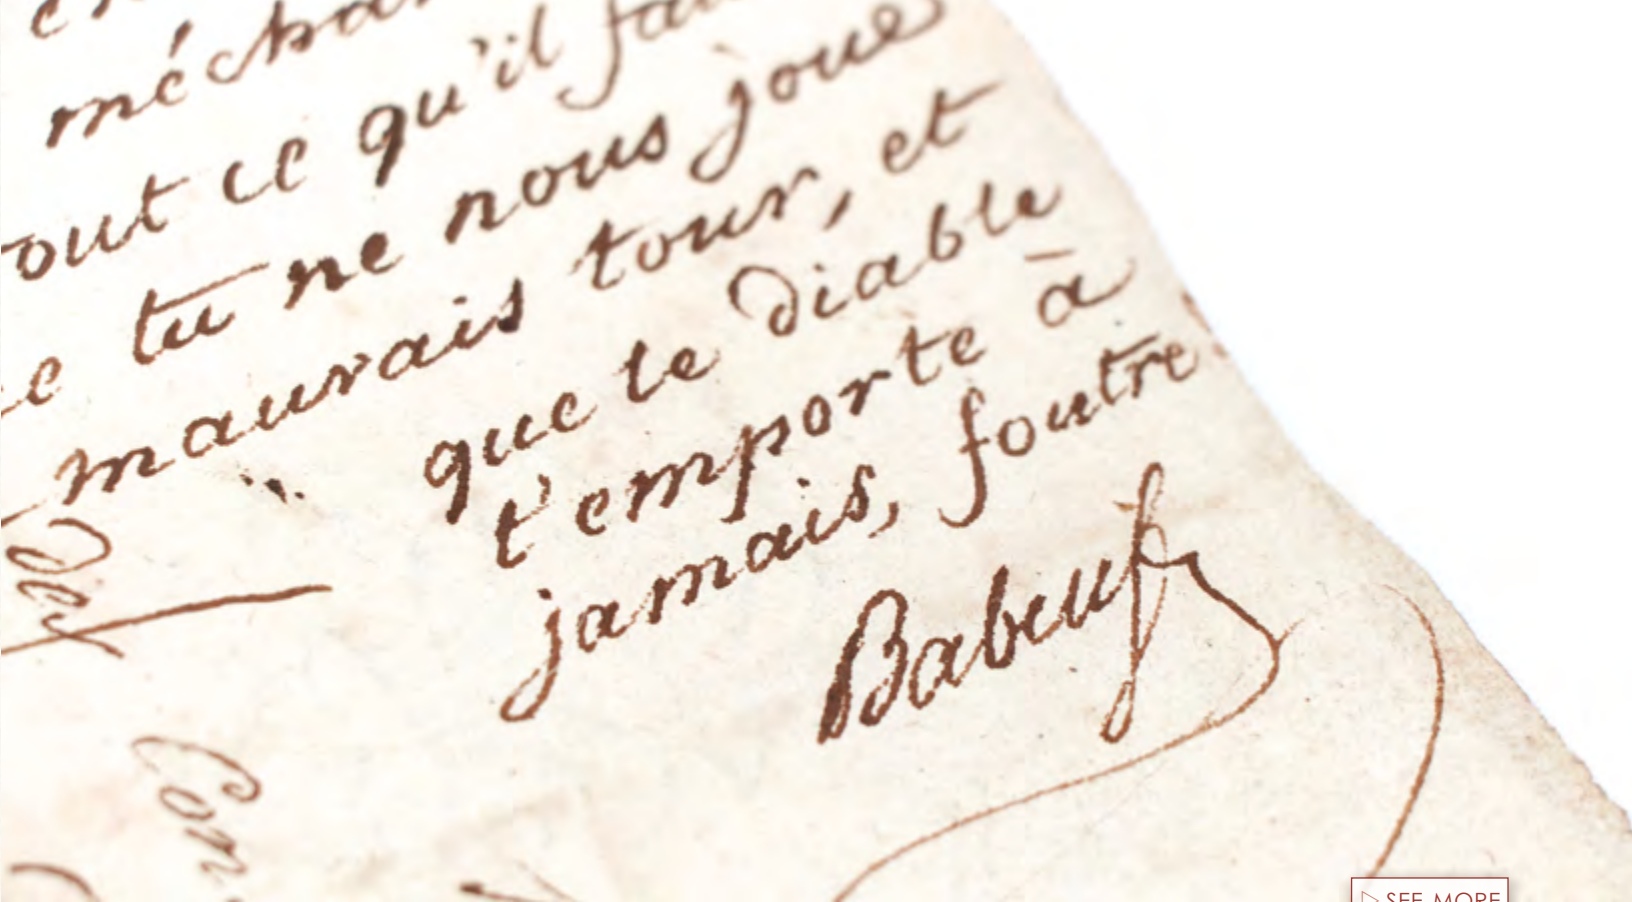 mécha
out ce qu'il fau
e tu ne nous joue
mauvais tour, et
que le diable
t'emporte à
jamais, foutre
Babeuf
Con
SEE MORE